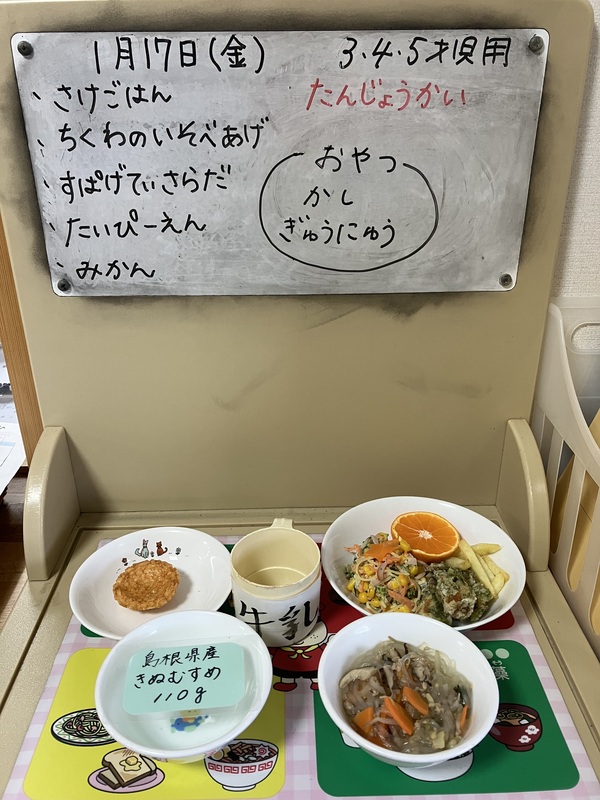 1月17日(金) 3・4・5才児用
、さけごはん たんじょうかい
、ちくわのいそべあげ
、すぱげてぃさらだ
、たいぴーえん
、みかん
おやつ
かし
ぎゅうにゅう
牛乳
島根県産
きぬむすめ
110g